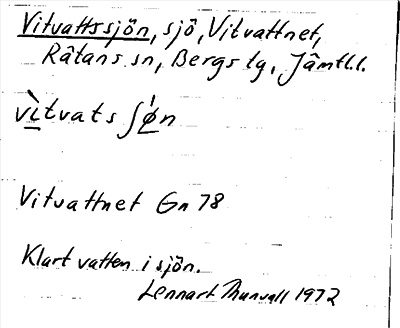 Vitvattssjön, sjö, Vitvattnet,
Rätans sn, Bergs tg, Jämtl.l.
vi�lt̀vats ʃǿn
Vitvattnet Gn 78
Klart vatten i sjön.
Lennart Thunvall 1972